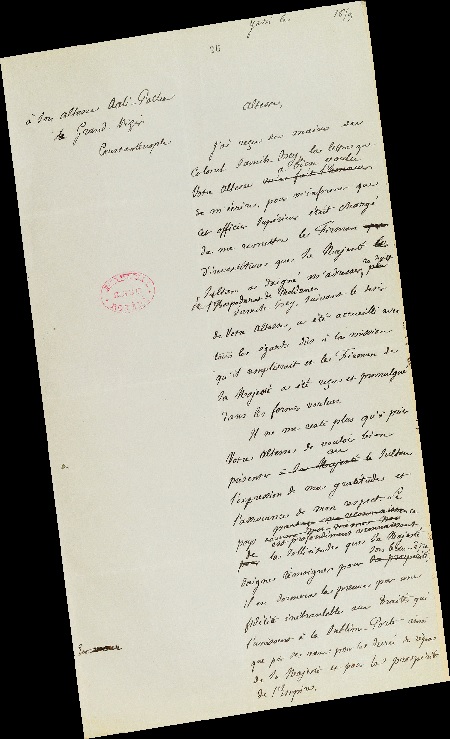 26
à Son Altesse Aali Pacha
Grand Vizir
Constantinople
Altesse,
J'ai reçu des mains du
Colonel Jamile Bey, la lettre que
Votre Altesse a bien voulu
m'écrire, pour m'informer que
cet officier Supérieur était chargé
de me remettre le Firman
d'investiture que Sa Majesté le
Sultan a daigné m'adresser
à l'Hospodarat de Moldavie
Jamile Bey, suivant le désir
de Votre Altesse, a été accueilli avec
tous les égards dûs à la mission
qu'il remplissait et le Firman de
Sa Majesté a été reçu et promulgué
dans les formes voulues.
Il ne me reste plus qu'à prier
Votre Altesse de vouloir bien
présenter à Sa Majesté le Sultan
l'expression de ma gratitude et
l'assurance de mon respect. Le
pays
est profondément reconnaissant
de la sollicitude que Sa Majesté
daigne témoigner pour son bien-être
il en donnera les preuves par une
fidélité inébranlable aux traités qui
l'unissent à la Sublime Porte ainsi
que par des vœux pour la durée du règne
de Sa Majesté et pour la prospérité
de l'Empire.